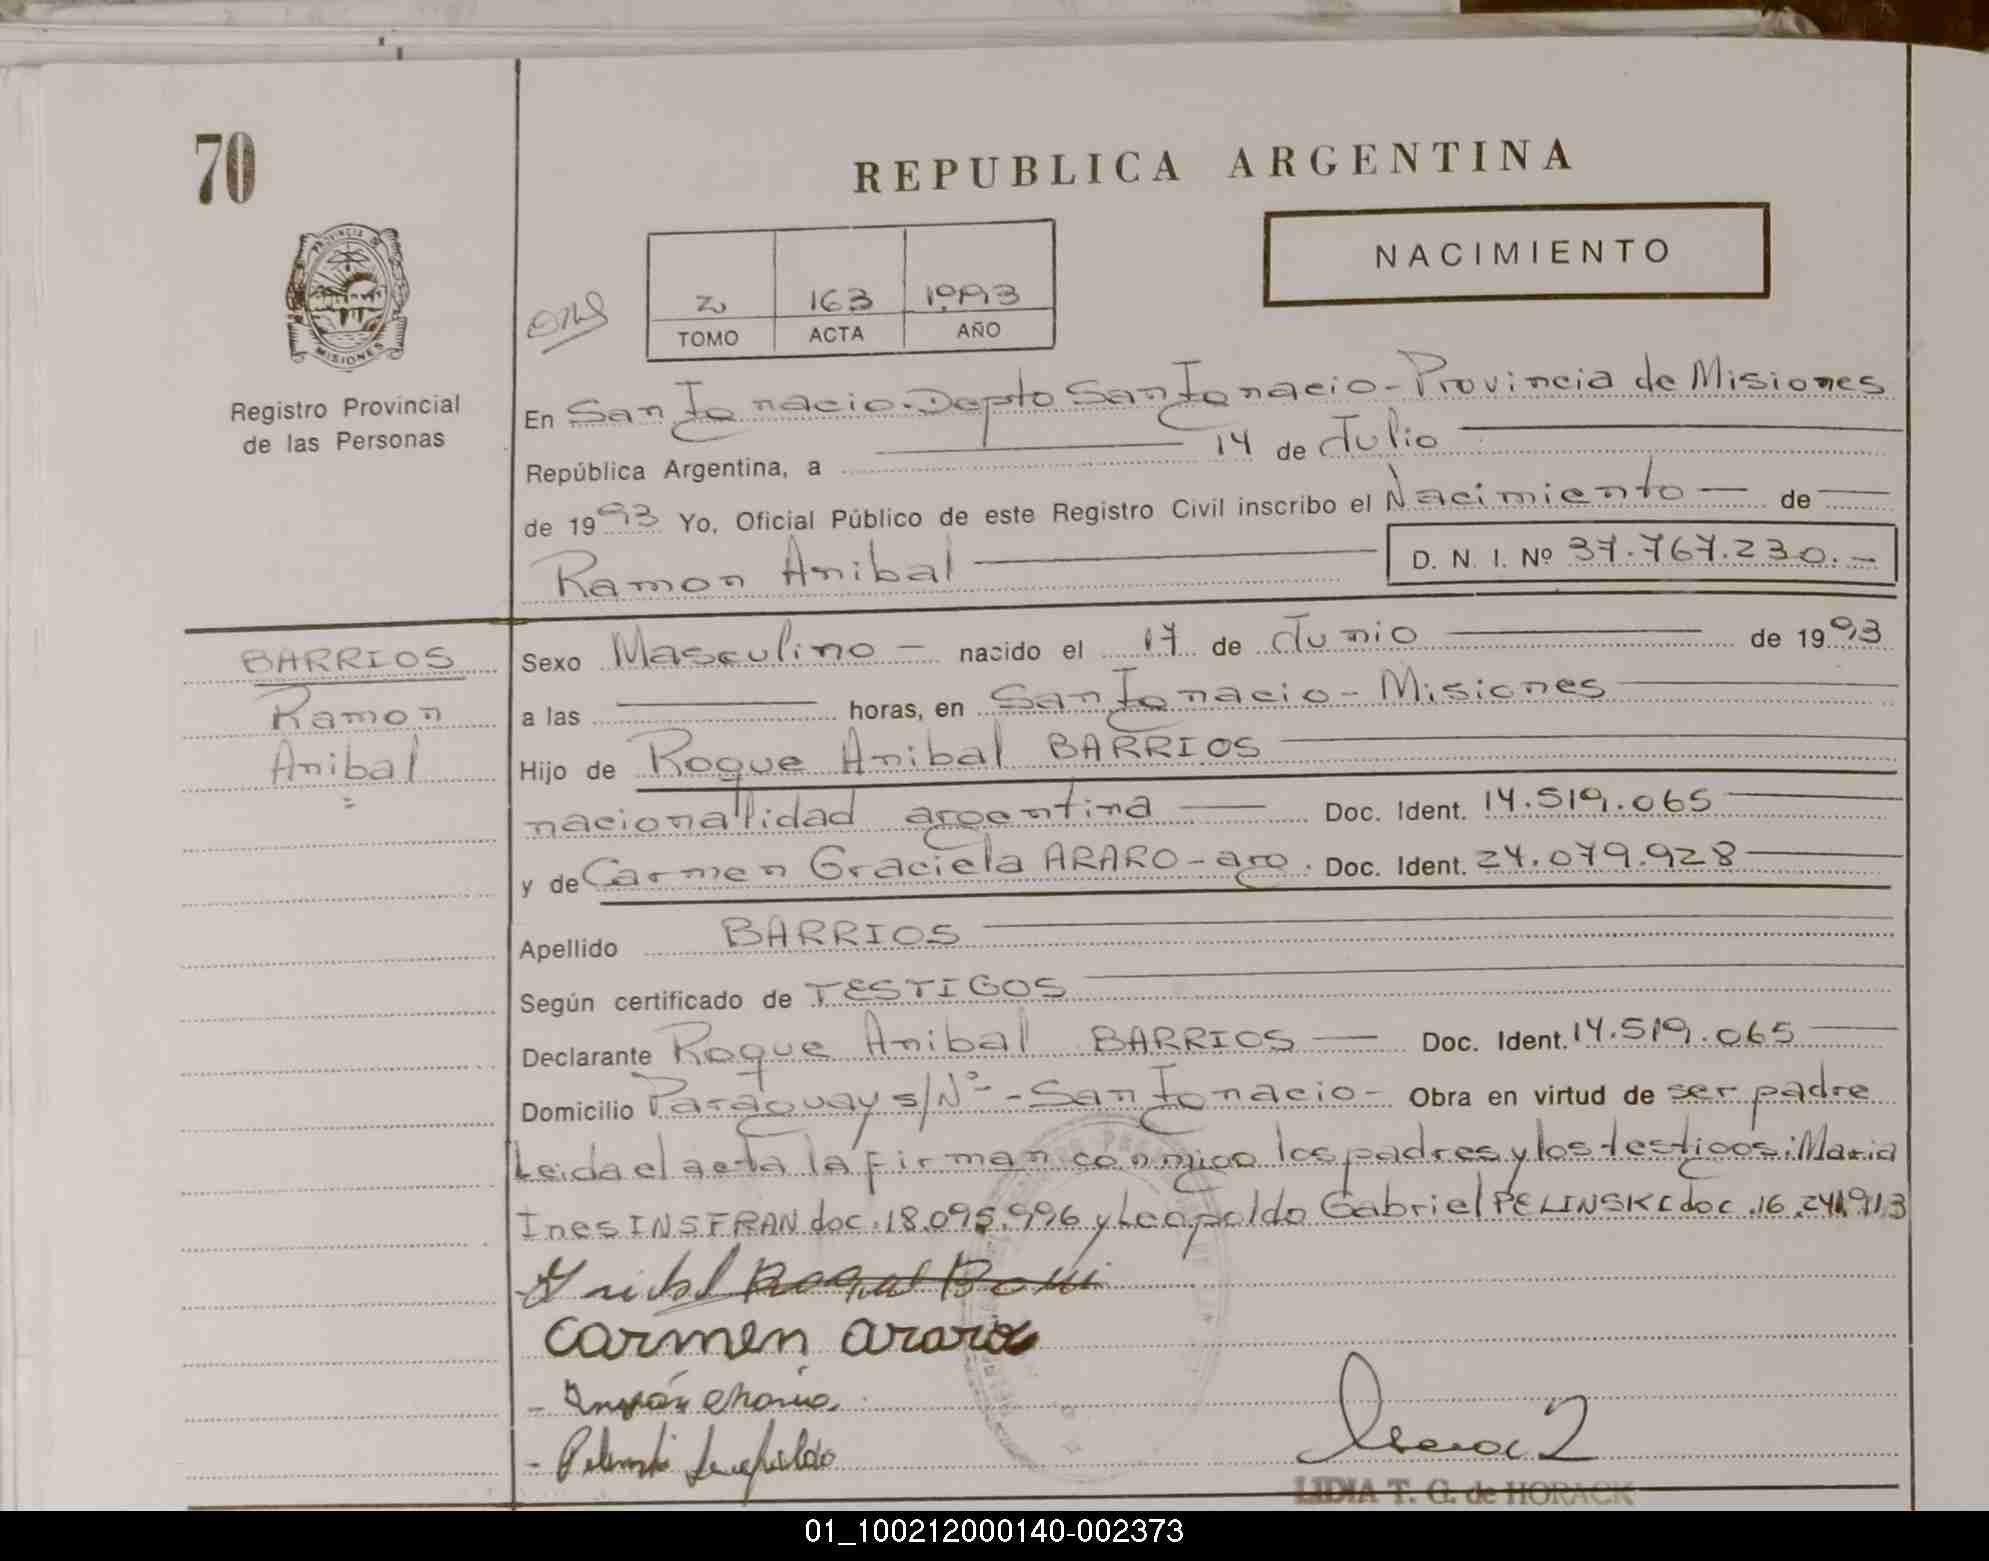 70
REPUBLICA ARGENTINA
NACIMIENTO
PROVINCIA DE
MISIONES
Registro Provincial
de las Personas
2 163 1993
TOMO ACTA AÑO
En San Ignacio. Depto San Ignacio - Provincia de Misiones
República Argentina, a 14 de Julio
de 1993 Yo, Oficial Público de este Registro Civil inscribo el Nacimiento de
Ramon Anibal D. N. I. Nº 37.767.230.-
BARRIOS
Ramon
Anibal
Sexo Masculino - nacido el 17 de Junio de 1993
a las horas, en San Ignacio - Misiones
Hijo de Roque Anibal BARRIOS
nacionalidad argentina Doc. Ident. 14.519.065
y de Carmen Graciela ARARO - arg. Doc. Ident. 24.079.928
Apellido BARRIOS
Según certificado de TESTIGOS
Declarante Roque Anibal BARRIOS Doc. Ident. 14.519.065
Domicilio Paraguay s/Nº - San Ignacio - Obra en virtud de ser padre
Leida el acta la firman conmigo los padres y los testigos: Maria
Ines INSFRAN doc. 18.095.996 y Leopoldo Gabriel PELINSKI doc. 16.241.913
Carmen Araro
LIDIA T. G. de HORACK
01_100212000140-002373